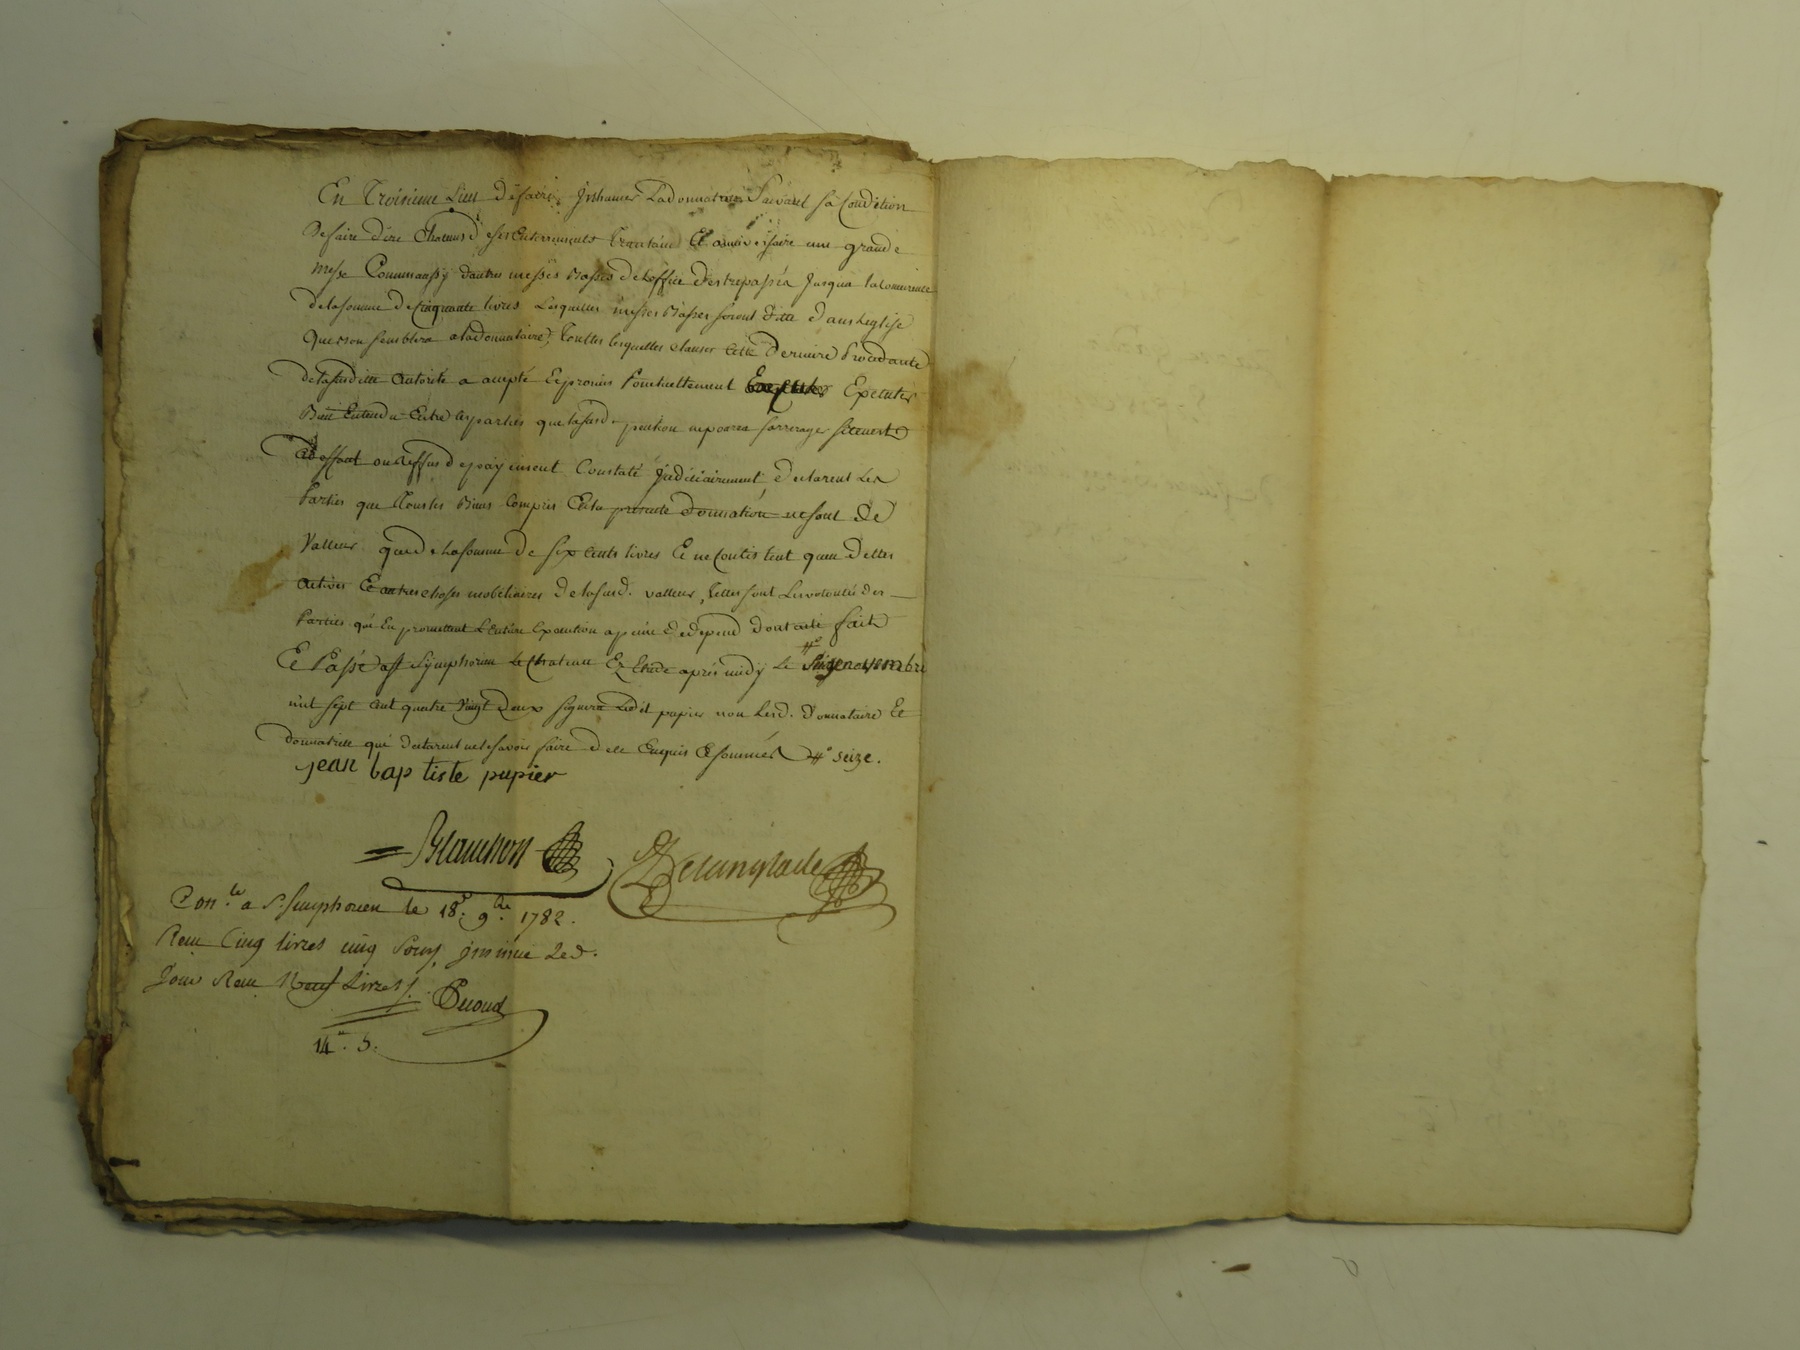 En Troisieme Lieu de faire Inhumer Ladonnatrice Suivant sa Condition
de faire dire Chacun d'eses enterrements trantaine Et anniversaire une grande
messe Comme aussy dautres messes Basses de Loffice des trepassés Jusqua la Concurance
delasomme de Cinquante livres Lesquelles messes Basses seront ditte dans Leglise
que bon semblera aladonnataire, Touttes lesquelles clauses Cette Derniere Procedante
delasusditte autorité a accepté Et promis Ponctuellement Executer
Bien Entendu Entre les parties que lasusd. pention arrerages
deffaut ou Reffus de payement Constaté Judiciairement declarent Les
Parties que Tous les Biens Compris En la presente donnation ne sont De
Valleur que de La somme de six Cents livres Et ne Consistent quen dettes
actives Et autres choses mobiliaires de lasusd. valleur, Telles sont Les volontés des
Parties qui En promettent L'Entiere Execution a peine de depend dont acte fait
Et Passé a st Symphorien Le Chateau Ez Etude aprés midy Le Seize novembre
mil sept Cent quatre vingt deux signera Ledit papier non Lesd. donnataire Et
donnatrice qui declarent ne le savoir faire de ce Enquis Et sommés # seize.
jean baptiste pupier
Blanchon Delanglade
Con.le a St. simphorien le 18.e 9.bre 1782.
Recu Cinq livres cinq Sous, Insinué Led.
Jour Recu Neuf Livres
14.. 5.